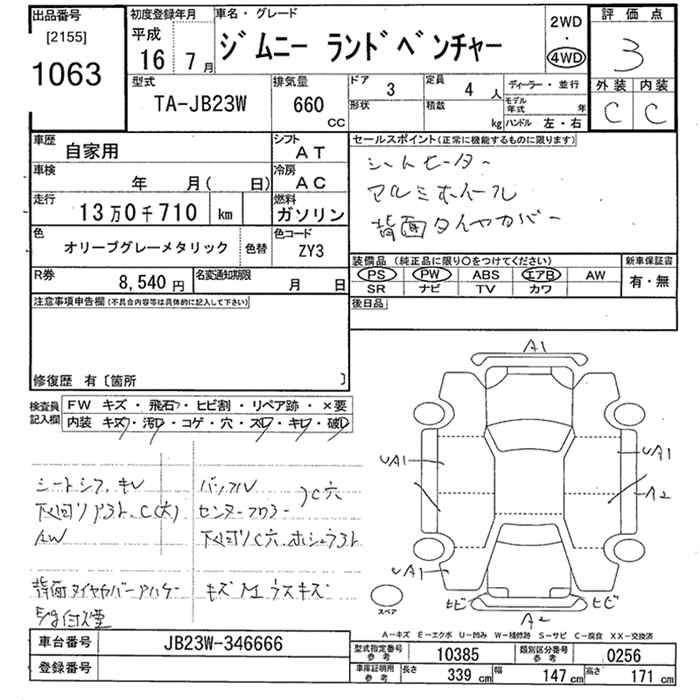 出品番号
[2155]
1063
初度登録年月
平成
16 7月
車名・グレード
ジムニー ランドベンチャー
2WD
・
4WD
評価点
3
外装 内装
C C
型式
TA-JB23W
排気量
660
CC
ドア
3
定員
4人
形状
積載
kg
ディーラー・並行
モデル年式 年
ハンドル 左・右
車歴
自家用
シフト
AT
車検
年 月( 日)
冷房
AC
走行
13万0千710 km
燃料
ガソリン
色
オリーブグレーメタリック
色替
色コード
ZY3
R券
8,540円
名変通知期限
月 日
セールスポイント(正常に機能するものに限ります)
シートヒーター
アルミホイール
背面タイヤカバー
装備品(純正品に限り○をつけてください)
PS PW ABS エアB AW
SR ナビ TV カワ
新車保証書
有・無
後日品
注意事項申告欄(不具合内容等は具体的に記入して下さい)
修復歴 有〔箇所 〕
検査員記入欄
FW キズ・飛石・ヒビ割・リペア跡・×要
内装 キズ・汚レ・コゲ・穴・スレ・キレ・破レ
下回りサビ、C(大)
AW
マフラー
センターフロアー
C穴
キズ M ウスキズ
A1
UA1
UA1
A2
UA1
ヒビ
ヒビ
A2
スペア
A-キズ E-エクボ U-凹み W-補修跡 S-サビ C-腐食 XX-交換済
車台番号
JB23W-346666
登録番号
型式指定番号
参考
10385
類別区分番号
参考
0256
車庫証明用
参考
長さ
339 cm
幅
147 cm
高さ
171 cm